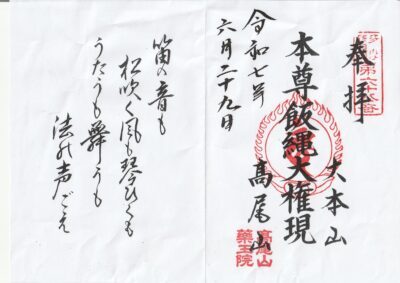 奉拝
大本山
本尊飯縄大権現
髙尾山
高尾山
藥王院
令和七年
六月二十九日
笛の音も
松吹く風も琴ひくも
うたうも舞うも
法の声ごえ